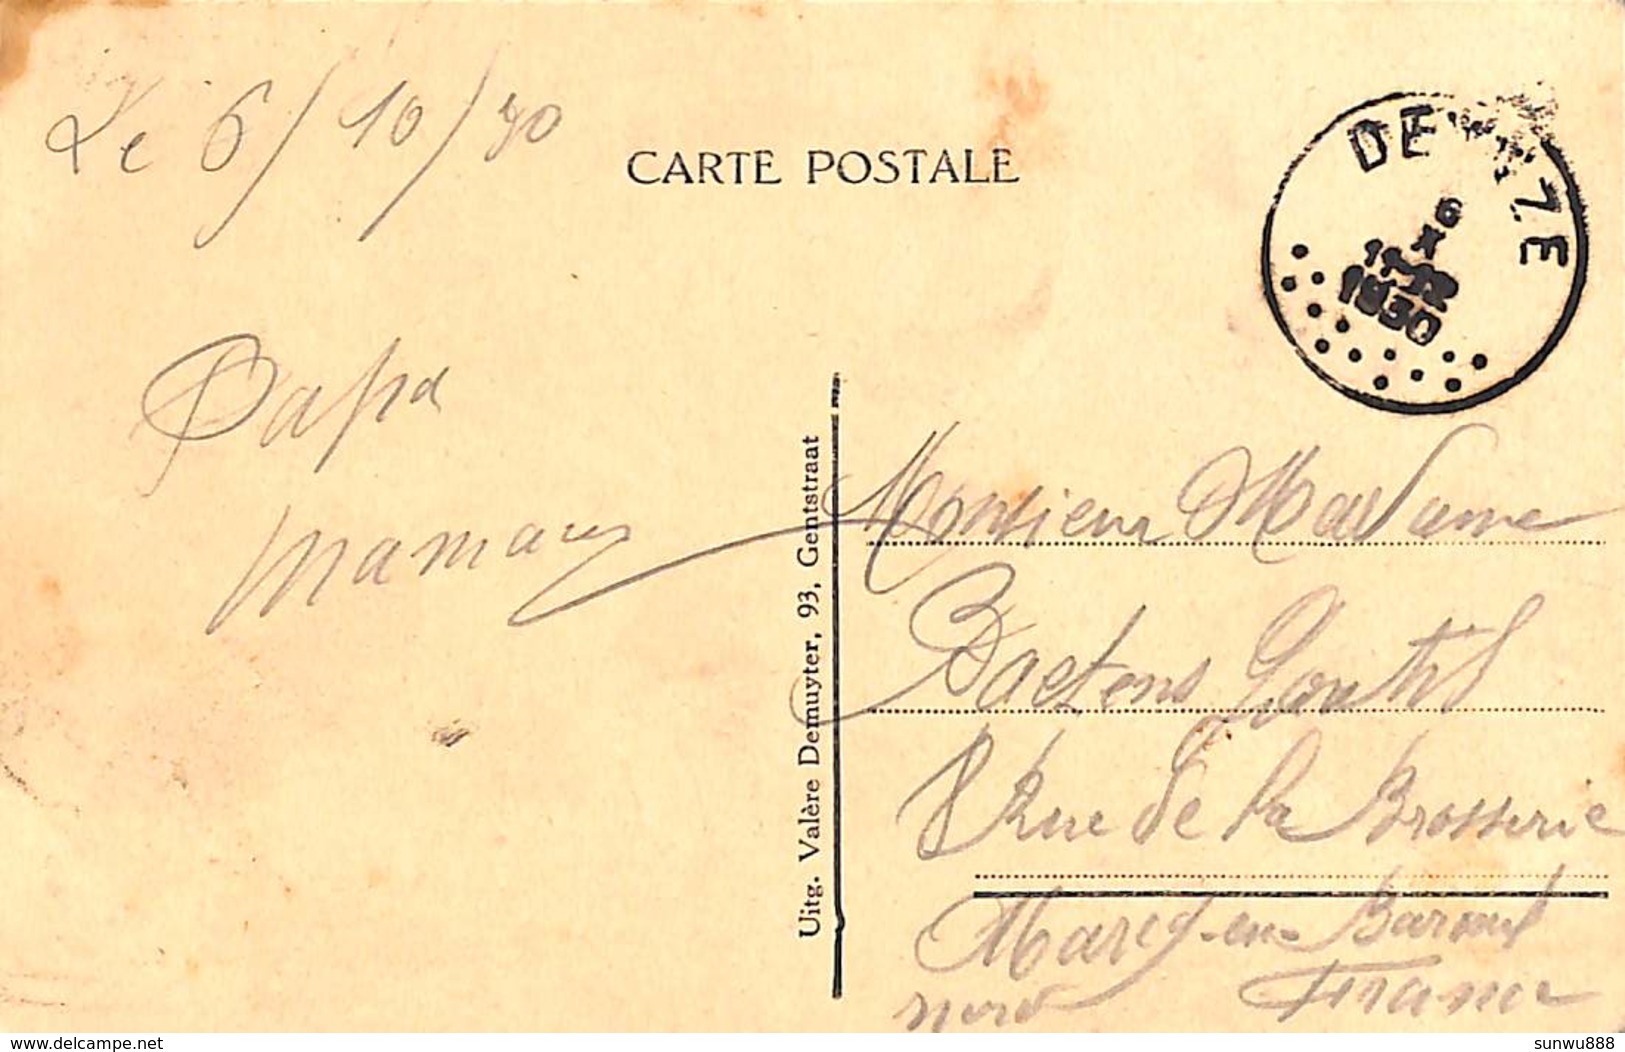 Le 6/10/30
CARTE POSTALE
DE ZE
6
X
1930
Papa
maman
Uitg. Valère Demuyter, 93, Gentstraat
Monsieur Madame
Baetens Gentil
Rue de la Brosserie
Marcq-en-Baroeul
nord France
www.delcampe.net
sunwu888